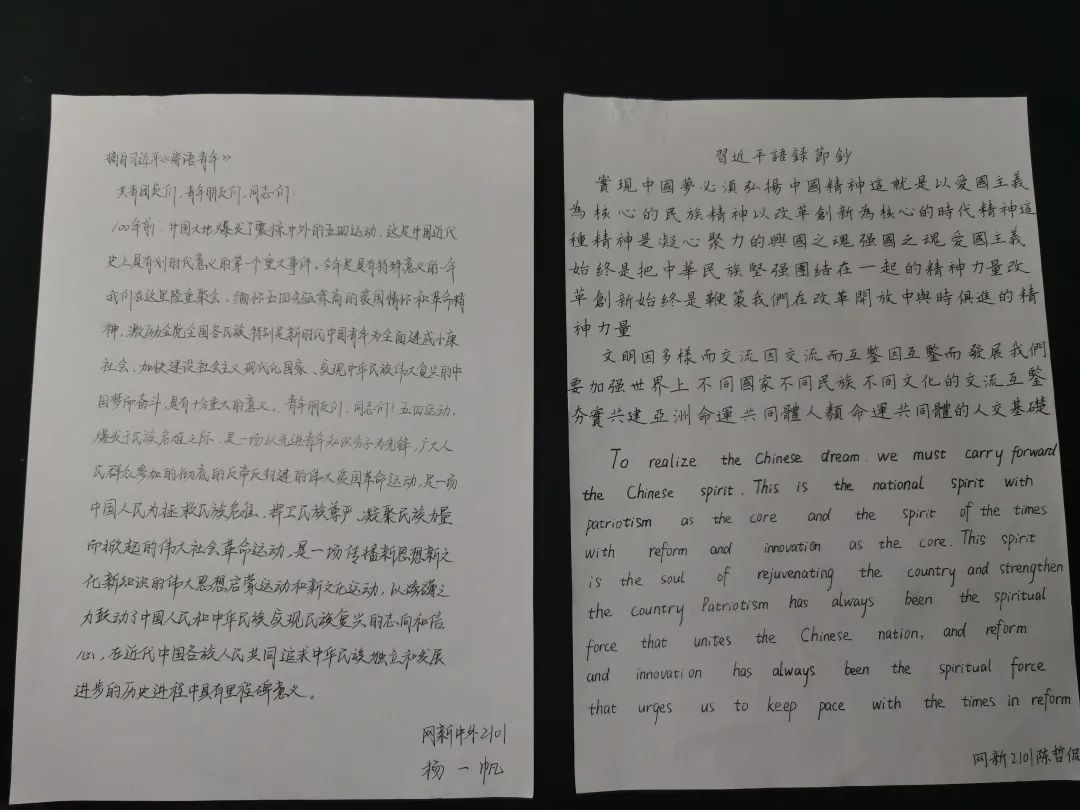 摘自习近平《寄语青年》
共青团员们、青年朋友们、同志们：
100年前，中国大地爆发了震惊中外的五四运动，这是中国近代
史上具有划时代意义的第一个重大事件。今年是具有特殊意义的一年
我们在这里隆重聚会，缅怀五四先驱崇高的爱国情怀和革命精
神，激励全党全国各民族特别是新时代中国青年为全面建成小康
社会、加快建设社会主义现代化国家、实现中华民族伟大复兴的中
国梦而奋斗，具有十分重大的意义。青年朋友们、同志们！五四运动，
爆发于民族危难之际，是一场以先进青年知识分子为先锋，广大人
民群众参加的彻底的反帝反封建的伟大爱国革命运动，是一场
中国人民为拯救民族危难、捍卫民族尊严、凝聚民族力量
而掀起的伟大社会革命运动，是一场传播新思想新文
化新知识的伟大思想启蒙运动和新文化运动，以磅礴之
力鼓动了中国人民和中华民族实现民族复兴的志向和信
心，在近代中国各族人民共同追求中华民族独立和发展
进步的历史进程中具有里程碑意义。
网新中外2101
杨一帆
習近平語録節鈔
實現中國夢必須弘揚中國精神這就是以愛國主義
為核心的民族精神以改革創新為核心的時代精神這
種精神是凝心聚力的興國之魂强國之魂愛國主義
始终是把中華民族堅强團结在一起的精神力量改
革創新始终是鞭策我們在改革開放中與時俱進的精
神力量
文明因多樣而交流因交流而互鑒因互鑒而發展我們
要加强世界上不同國家不同民族不同文化的交流互鑒
夯實共建亞洲命運共同體人類命運共同體的人文基礎
To realize the Chinese dream. we must carry forward
the Chinese spirit. This is the national spirit with
patriotism as the core and the spirit of the times
with reform and innovation as the core. This spirit
is the soul of rejuvenating the country and strengthen
the country. Patriotism has always been the spiritual
force that unites the Chinese nation, and reform
and innovation has always been the spiritual force
that urges us to keep pace with the times in reform
网新2101陈哲侃